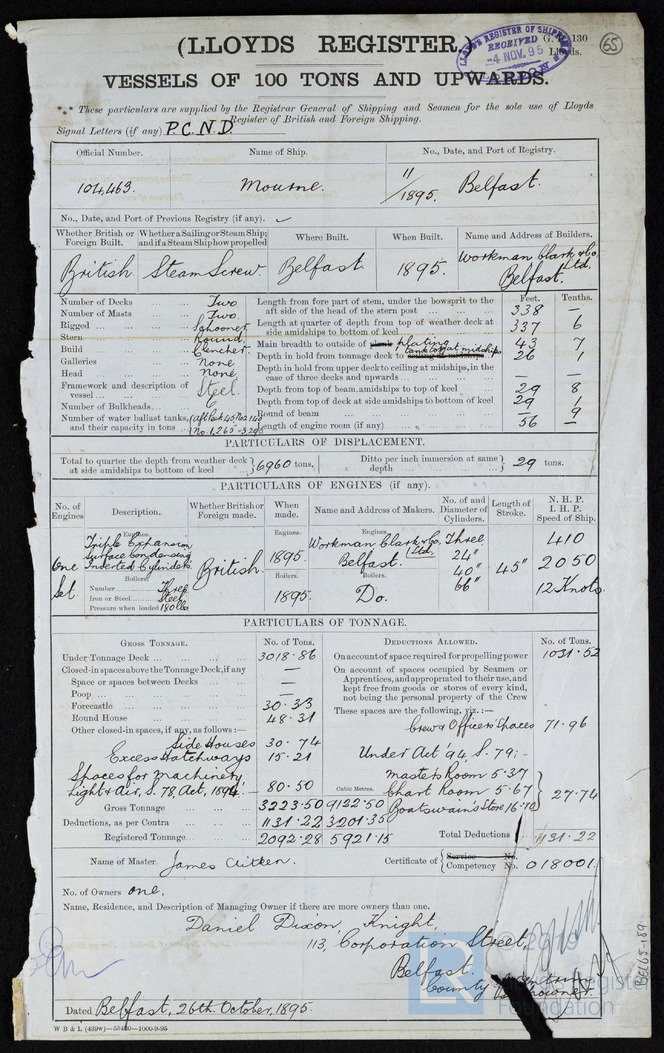 (LLOYDS REGISTER.)
G. 130
Lloyds.
LLOYD'S REGISTER OF SHIPPING
RECEIVED
-4 NOV. 95
65
VESSELS OF 100 TONS AND UPWARDS.
*** These particulars are supplied by the Registrar General of Shipping and Seamen for the sole use of Lloyds
Register of British and Foreign Shipping.
Signal Letters (if any) P.C.N.D.
Official Number. Name of Ship. No., Date, and Port of Registry.
104,463. Mourne. 11/1895. Belfast.
No., Date, and Port of Previous Registry (if any).
Whether British or Foreign Built. Whether a Sailing or Steam Ship; and if a Steam Ship how propelled Where Built. When Built. Name and Address of Builders.
British Steam Screw Belfast 1895. Workman Clark & Co. Ltd. Belfast.
Feet. Tenths.
Number of Decks ... Two
Number of Masts ... Two.
Rigged ... Schooner
Stern ... Round
Build ... Clencher
Galleries ... None
Head ... None
Framework and description of vessel ... Steel.
Number of Bulkheads ... 6
Number of water ballast tanks, and their capacity in tons ...
Length from fore part of stem, under the bowsprit to the aft side of the head of the stern post ... 338 —
Length at quarter of depth from top of weather deck at side amidships to bottom of keel ... 337 6
Main breadth to outside of plank plating 43 7
Depth in hold from tonnage deck to ceiling at midships tank top at midships 26 1
Depth in hold from upper deck to ceiling at midships, in the case of three decks and upwards ... — —
Depth from top of beam amidships to top of keel ... 29 8
Depth from top of deck at side amidships to bottom of keel 29 1
Round of beam ... — 9
Length of engine room (if any) ... 56 —
PARTICULARS OF DISPLACEMENT.
Total to quarter the depth from weather deck at side amidships to bottom of keel ... 6960 tons. Ditto per inch immersion at same depth ... 29 tons.
PARTICULARS OF ENGINES (if any).
No. of Engines Description. Whether British or Foreign made. When made. Name and Address of Makers. No. of and Diameter of Cylinders. Length of Stroke. N. H. P. I. H. P. Speed of Ship.
One Set
Engines.
Triple Expansion
Surface Condensing
Inverted Cylinders
Boilers.
Number ... Three
Iron or Steel ... Steel
Pressure when loaded 180 lbs
British.
Engines.
1895.
Boilers.
1895.
Engines.
Workman Clark & Co. Ltd.
Belfast.
Boilers.
Do.
Three
24"
40"
66"
45"
410
2050
12 Knots
PARTICULARS OF TONNAGE.
GROSS TONNAGE. No. of Tons.
Under Tonnage Deck ... 3018.86
Closed-in spaces above the Tonnage Deck, if any —
Space or spaces between Decks ... —
Poop ... —
Forecastle ... 30.33
Round House ... 48.31
Other closed-in spaces, if any, as follows :—
Side Houses 30.74
Excess Hatchways 15.21
Spaces for machinery,
Light & Air, S. 78, Act, 1894. — 80.50
Cubic Metres.
Gross Tonnage 3223.50 9122.50
Deductions, as per Contra ... 1131.22 3201.35
Registered Tonnage ... 2092.28 5921.15
DEDUCTIONS ALLOWED. No. of Tons.
On account of space required for propelling power 1031.52
On account of spaces occupied by Seamen or Apprentices, and appropriated to their use, and kept free from goods or stores of every kind, not being the personal property of the Crew
These spaces are the following, viz. :—
Crew & Officers Spaces 71.96
Under Act '94, S. 79 :-
Masters Room 5.37
Chart Room 5.67
Boatswain's Store 16.70
27.74
Total Deductions ... 1131.22
Name of Master James Aitken. Certificate of Service No. Competency No. 018001
No. of Owners one.
Name, Residence, and Description of Managing Owner if there are more owners than one.
Daniel Dixon, Knight,
113, Corporation Street,
Belfast.
County
Dated Belfast, 26th October, 1895.
W B & L (439w)—55400—1000-9-95
© 2019
Lloyd's Register
Foundation
BEL65-189